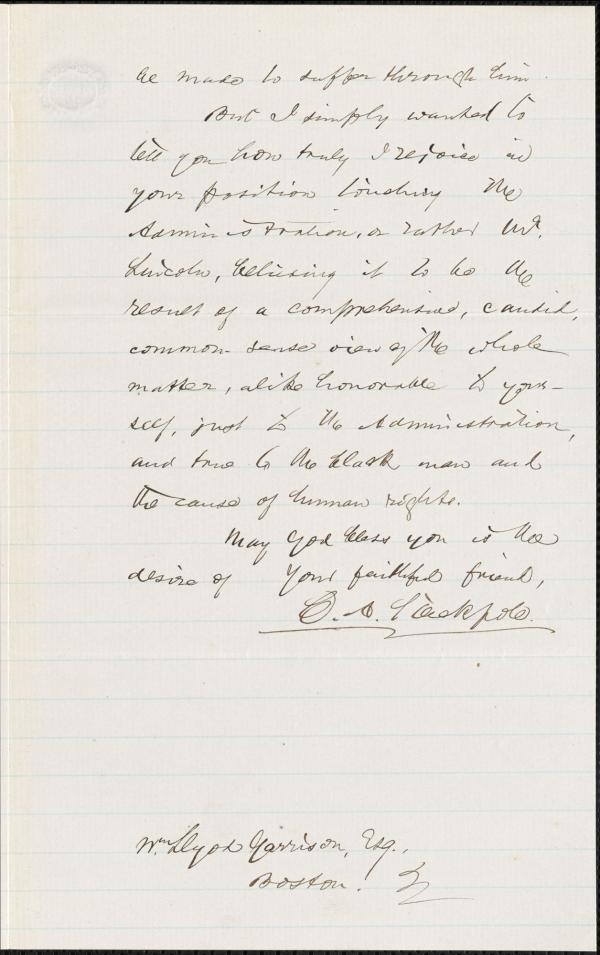 be made to suffer through him.
But I simply wanted to
tell you how truly I rejoice in
your position touching the
Administration, or rather Mr.
Lincoln, believing it to be the
result of a comprehensive, candid,
common-sense view of the whole
matter, alike honorable to your-
self, just to the Administration,
and true to the black man and
the cause of human rights.
May God bless you is the
desire of Your faithful friend,
C. A. Stackpole.
Wm. Llyod Garrison, Esq.,
Boston.